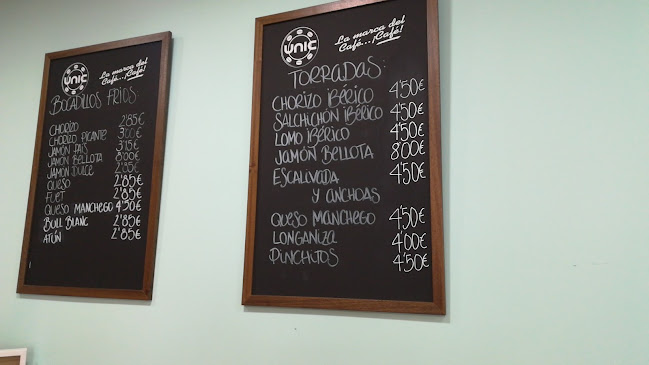 UNIC
La marca del
Café...¡Café!
BOCADILLOS FRIOS
CHORIZO 2'85€
CHORIZO PICANTE 3'00€
JAMÓN PAIS 3'15€
JAMÓN BELLOTA 8'00€
JAMÓN DULCE 2'85€
QUESO 2'85€
FUET 2'85€
QUESO MANCHEGO 4'50€
BULL BLANC 2'85€
ATÚN 2'85€
UNIC
La marca del
Café...¡Café!
TORRADAS:
CHORIZO IBÉRICO 4'50€
SALCHICHÓN IBÉRICO 4'50€
LOMO IBÉRICO 4'50€
JAMÓN BELLOTA 8'00€
ESCALIVADA 4'50€
Y ANCHOAS
QUESO MANCHEGO 4'50€
LONGANIZA 4'00€
PINCHITOS 4'50€